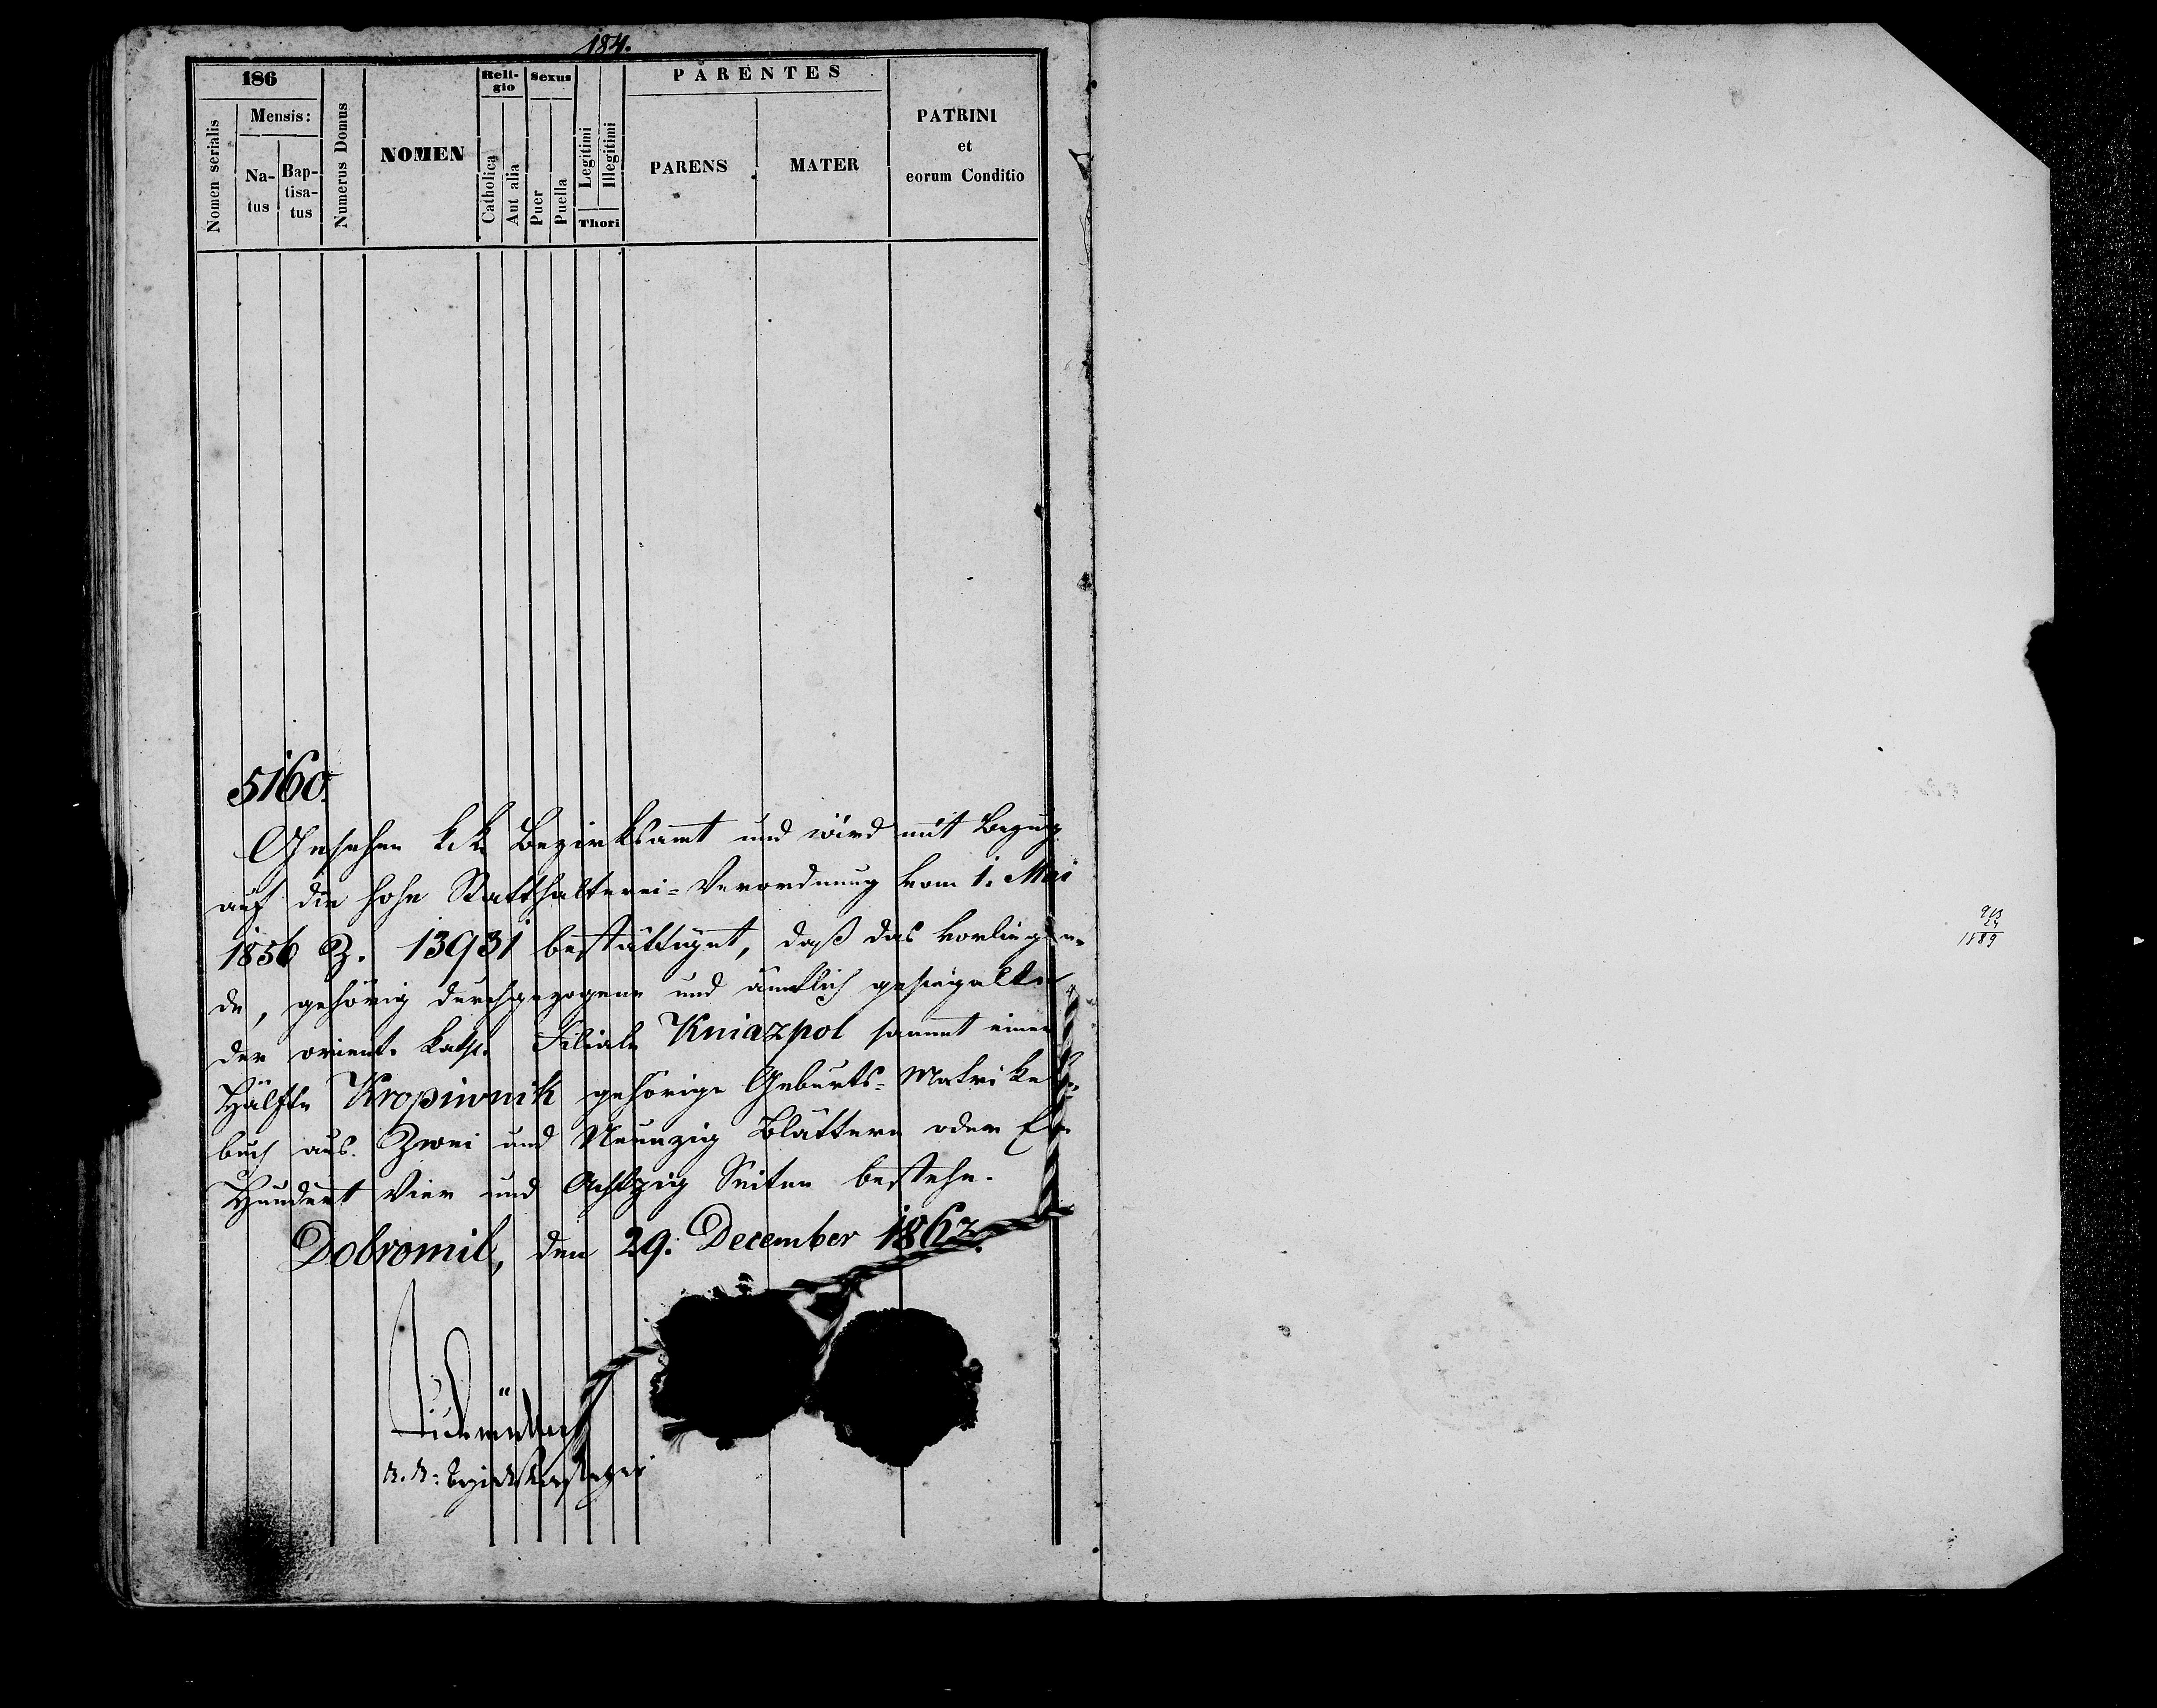 184.
186
Mensis:
Nomen serialis
Na-
tus
Bap-
tisa-
tus
Numerus Domus
NOMEN
Reli-
gio
Catholica
Aut alia
Sexus
Puer
Puella
Legitimi
Illegitimi
Thori
PARENTES
PARENS
MATER
PATRINI
et
eorum Conditio
5160.
Gesehen k.k. Bezirksamt und wird mit Bezug
auf die hohe Statthalterei-Verordnung vom 1. Mai
1856 Z. 13931 bestättiget, daß das vorliegen-
de, gehörig durchgezogene und ämtlich gesiegelte
der orient. kath. Filiale Kniazpol sammt einer
Hälfte Kropiwnik gehörige Geburts-Matrikel-
buch aus Zwei und Neunzig Blättern oder
Hundert Vier und Achtzig Seiten bestehe.
Dobromil, den 29. December 1862.
k.k. Bezirksvorsteher
24
1889